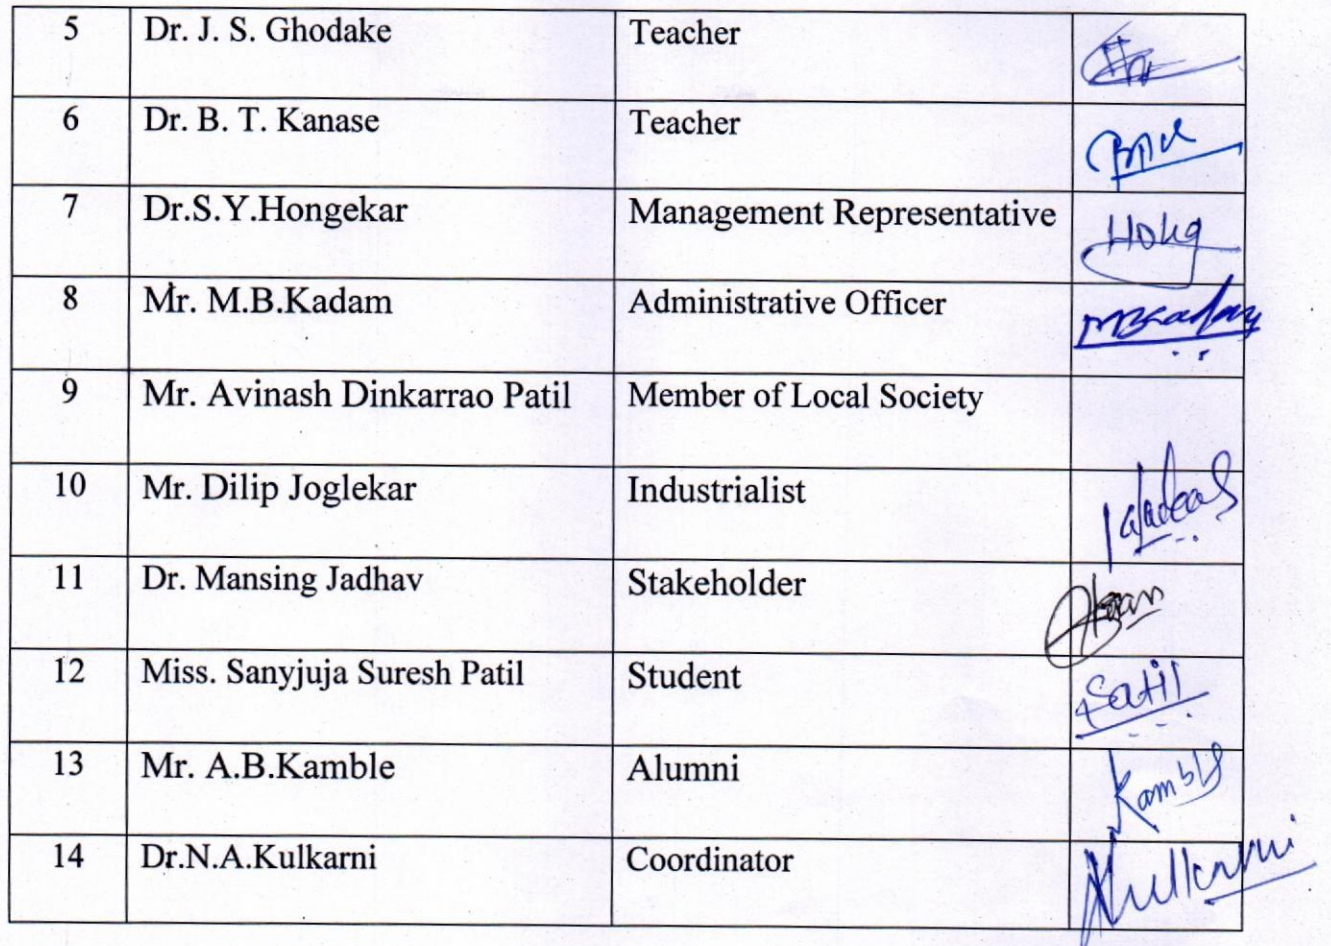 5 Dr. J. S. Ghodake Teacher
6 Dr. B. T. Kanase Teacher
7 Dr.S.Y.Hongekar Management Representative Hokg
8 Mr. M.B.Kadam Administrative Officer
9 Mr. Avinash Dinkarrao Patil Member of Local Society
10 Mr. Dilip Joglekar Industrialist
11 Dr. Mansing Jadhav Stakeholder
12 Miss. Sanyjuja Suresh Patil Student
13 Mr. A.B.Kamble Alumni Kamble
14 Dr.N.A.Kulkarni Coordinator Kulkarni